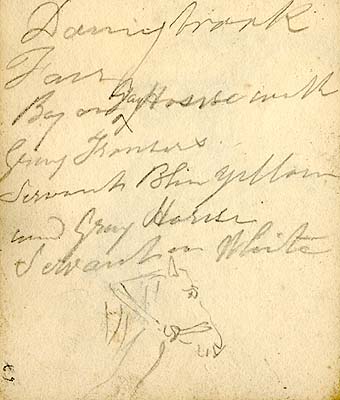 Donnybrook
Fair
Boy on Gray Horse with
Gray Trousers
Servant Blue Yellow
and Gray Horse
Servant on White